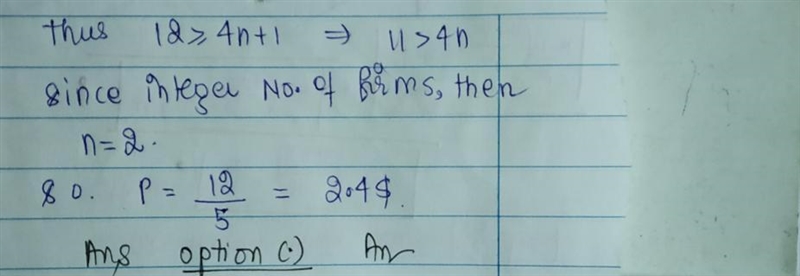 thus 12 ≥ 4n+1 ⇒ 11 > 4n
since integer No. of firms, then
n=2.
So. P = 12/5 = 2.4$.
Ans option (.) An